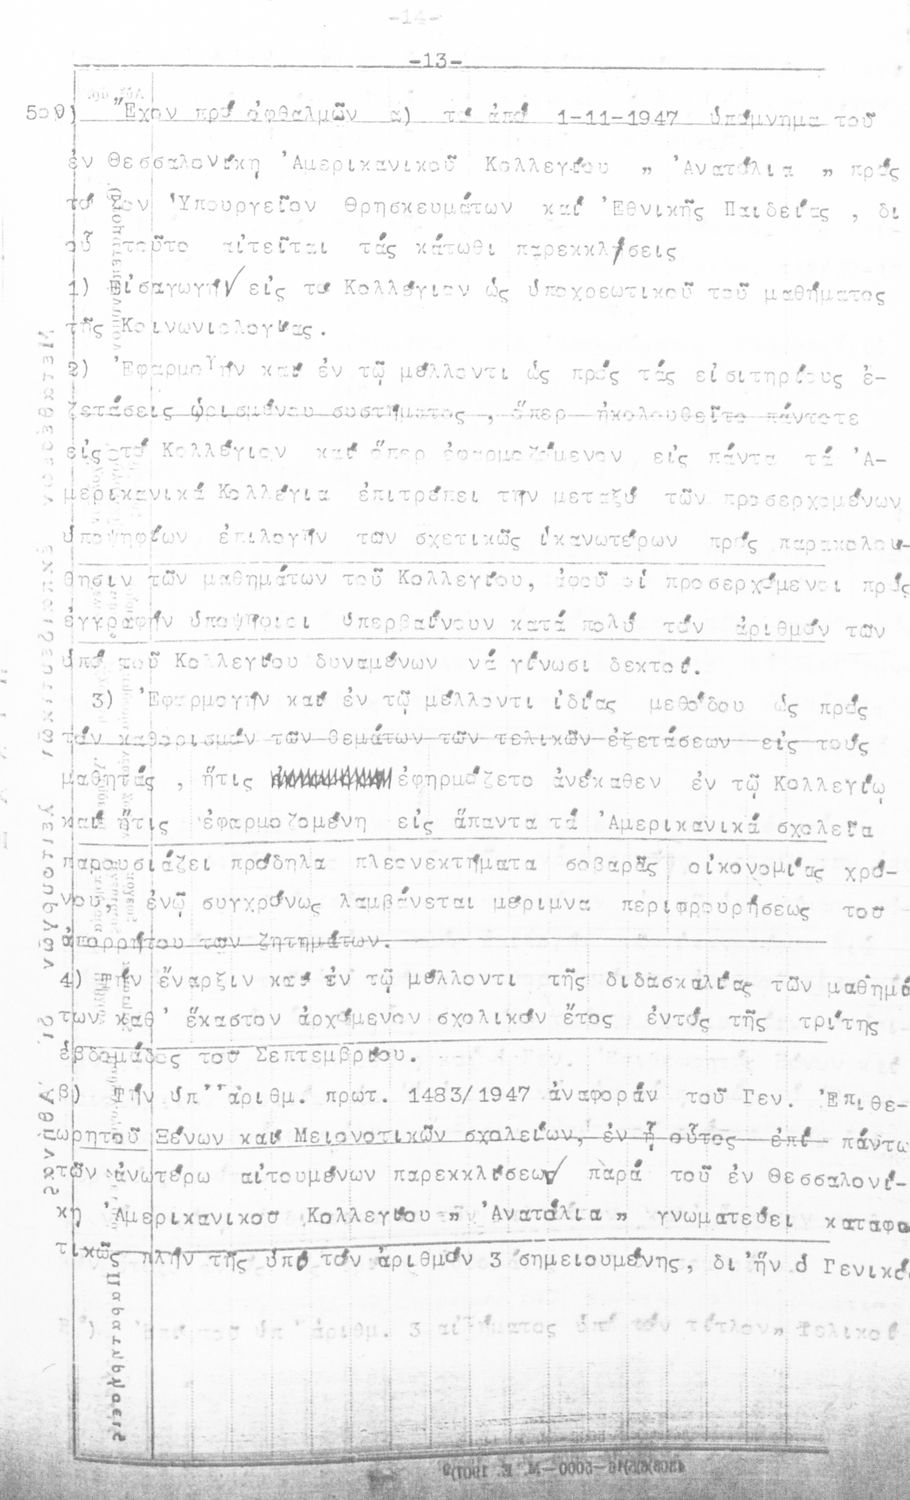 -14-
-13-
5ον) Ἔχον πρό ὀφθαλμῶν α) τό ἀπό 1-11-1947 ὑπόμνημα τοῦ
ἐν Θεσσαλονίκη Ἀμερικανικοῦ Κολλεγίου „ Ἀνατόλια „ πρός
τό Σον Ὑπουργεῖον Θρησκευμάτων καί Ἐθνικῆς Παιδείας , δι
οὗ τοῦτο αἰτεῖται τάς κάτωθι παρεκκλίσεις
1) Εἰσαγωγήν εἰς το Κολλέγιον ὡς ὑποχρεωτικοῦ τοῦ μαθήματος
τῆς Κοινωνιολογίας.
2) Ἐφαρμογήν καί ἐν τῷ μέλλοντι ὡς πρός τάς εἰσιτηρίους ἐ-
ξετάσεις ὡρισμένου συστήματος , ὅπερ ἠκολουθεῖτο πάντοτε
εἰς τό Κολλέγιον καί ὅπερ ἐφαρμοζόμενον εἰς πάντα τά Ἀ-
μερικανικά Κολλέγια ἐπιτρέπει την μεταξύ τῶν προσερχομένων
ὑποψηφίων ἐπιλογήν των σχετικῶς ἱκανωτέρων πρός παρακολου-
θησιν τῶν μαθημάτων τοῦ Κολλεγίου, ἀφοῦ οἱ προσερχόμενοι πρός
ἐγγραφήν ὑποψήφιοι ὑπερβαίνουν κατά πολύ τόν ἀριθμόν τῶν
ὑπό τοῦ Κολλεγίου δυναμένων νά γίνωσι δεκτοί.
3) Ἐφαρμογήν καί ἐν τῷ μέλλοντι ἰδίας μεθόδου ὡς πρός
τόν καθορισμόν των θεμάτων τῶν τελικῶν ἐξετάσεων εἰς τούς
μαθητάς , ἥτις ἐφηρμόζετο ἀνέκαθεν ἐν τῷ Κολλεγίῳ
καί ἥτις ἐφαρμοζομένη εἰς ἅπαντα τά Ἀμερικανικά σχολεῖα
παρουσιάζει πρόδηλα πλεονεκτήματα σοβαρᾶς οἰκονομίας χρό-
νου, ἐνῷ συγχρόνως λαμβάνεται μέριμνα περιφρουρήσεως του
ἀπορρήτου των ζητημάτων.
4) Τήν ἔναρξιν καί ἐν τῷ μέλλοντι τῆς διδασκαλίας τῶν μαθημά
των καθ' ἕκαστον ἀρχόμενον σχολικόν ἔτος ἐντός τῆς τρίτης
ἑβδομάδος τοῦ Σεπτεμβρίου.
β) Τήν ὑπ' ἀριθμ. πρωτ. 1483/1947 ἀναφοράν τοῦ Γεν. Ἐπιθε-
ωρητοῦ Ξένων καί Μειονοτικῶν σχολείων, ἐν ᾗ οὗτος ἐπί πάντω
τῶν ἀνωτέρω αἰτουμένων παρεκκλίσεων παρά τοῦ ἐν Θεσσαλονί-
κη Ἀμερικανικοῦ Κολλεγίου „ Ἀνατόλια „ γνωματεύει καταφα
τικῶς πλήν τῆς ὑπό τόν ἀριθμόν 3 σημειουμένης, δι ἥν ὁ Γενικός
ὑπ' ἀριθμ. 3 αἰτήματος ὑπό τόν τίτλον „ Τελικοί
Παρατηρήσεις